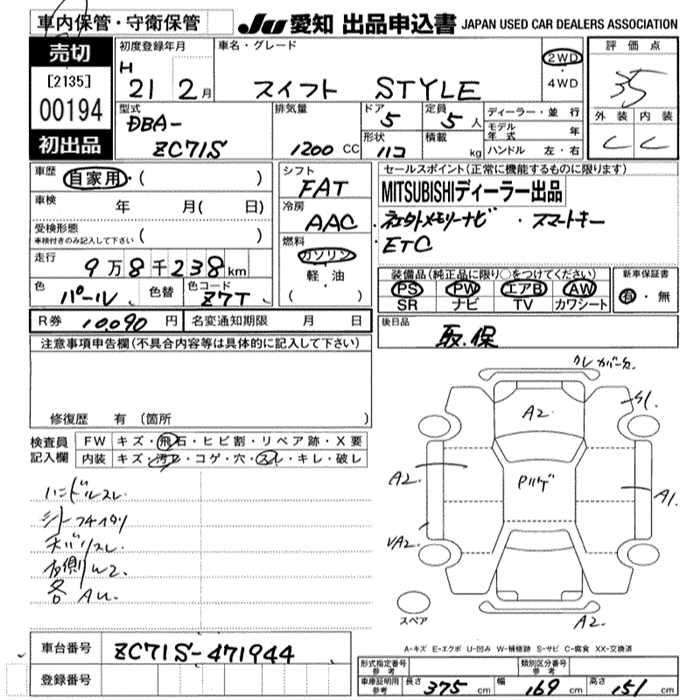 車内保管・守衛保管
JU 愛知 出品申込書 JAPAN USED CAR DEALERS ASSOCIATION
売切
[2135]
00194
初出品
初度登録年月
H
21 2月
車名・グレード
スイフト STYLE
2WD
・
4WD
評価点
35
外装 内装
C C
型式
DBA-
ZC71S
排気量
1200 CC
ドア
5
定員
5人
形状
ハコ
積載
kg
ディーラー・並行
モデル年式 年
ハンドル 左・右
車歴
自家用・( )
車検
年 月( 日)
受検形態
車検付きのみ記入して下さい ( )
走行
9万8千238km
色
パール
色替
色コード
Z7T
シフト
FAT
冷房
AAC
燃料
ガソリン
軽・油
( )
セールスポイント(正常に機能するものに限ります)
MITSUBISHIディーラー出品
社外メモリーナビ ・スマートキー
ETC
装備品(純正品に限り○をつけてください)
PS PW エアB AW
SR ナビ TV カワシート
新車保証書
有・無
R券 10,090円
名変通知期限 月 日
後日品
取.保
注意事項申告欄(不具合内容等は具体的に記入して下さい)
修復歴 有(箇所 )
検査員
記入欄
FW キズ・飛石・ヒビ割・リペア跡・X要
内装 キズ・汚レ・コゲ・穴・スレ・キレ・破レ
ハンドルスレ
天バリスレ
右側W2
各AU
A2
S1
A2
Pルゲ
A1
VA2
A2
スペア
A-キズ E-エクボ U-凹み W-補修跡 S-サビ C-腐食 XX-交換済
車台番号
ZC71S-471944
登録番号
形式指定番号
参考
類別区分番号
参考
車庫証明用
参考
長さ 375cm 幅 169cm 高さ 151cm